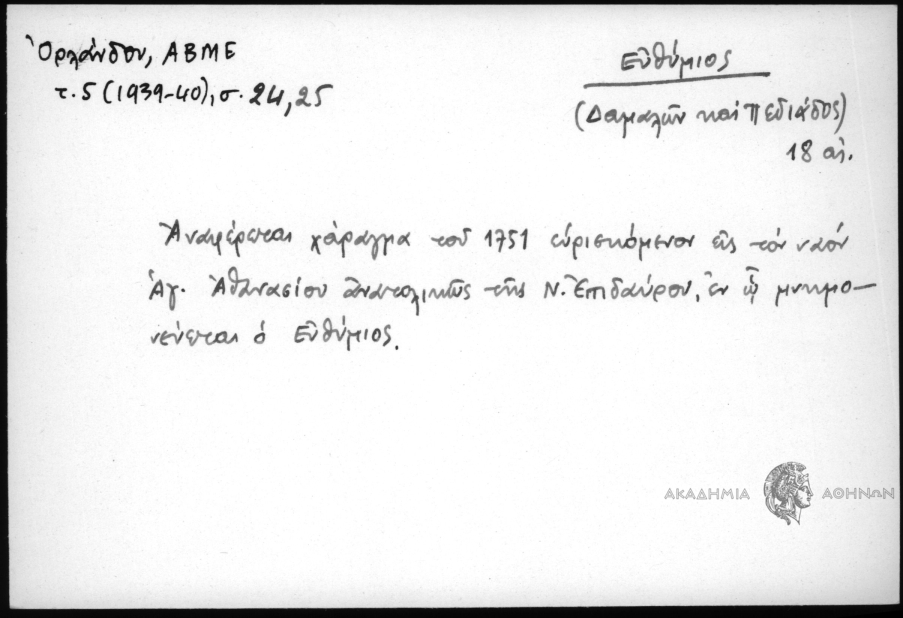 Ὀρλάνδου, ΑΒΜΕ
τ. 5 (1939-40), σ. 24, 25
Εὐθύμιος
(Δαμαλῶν καὶ Πεδιάδος)
18 αἰ.
Ἀναφέρεται χάραγμα τοῦ 1751 εὑρισκόμενον εἰς τὸν ναὸν
Ἁγ. Ἀθανασίου ἀνατολικῶς τῆς Ν. Ἐπιδαύρου, ἐν ᾧ μνημο-
νεύεται ὁ Εὐθύμιος.
ΑΚΑΔΗΜΙΑ ΑΘΗΝΩΝ